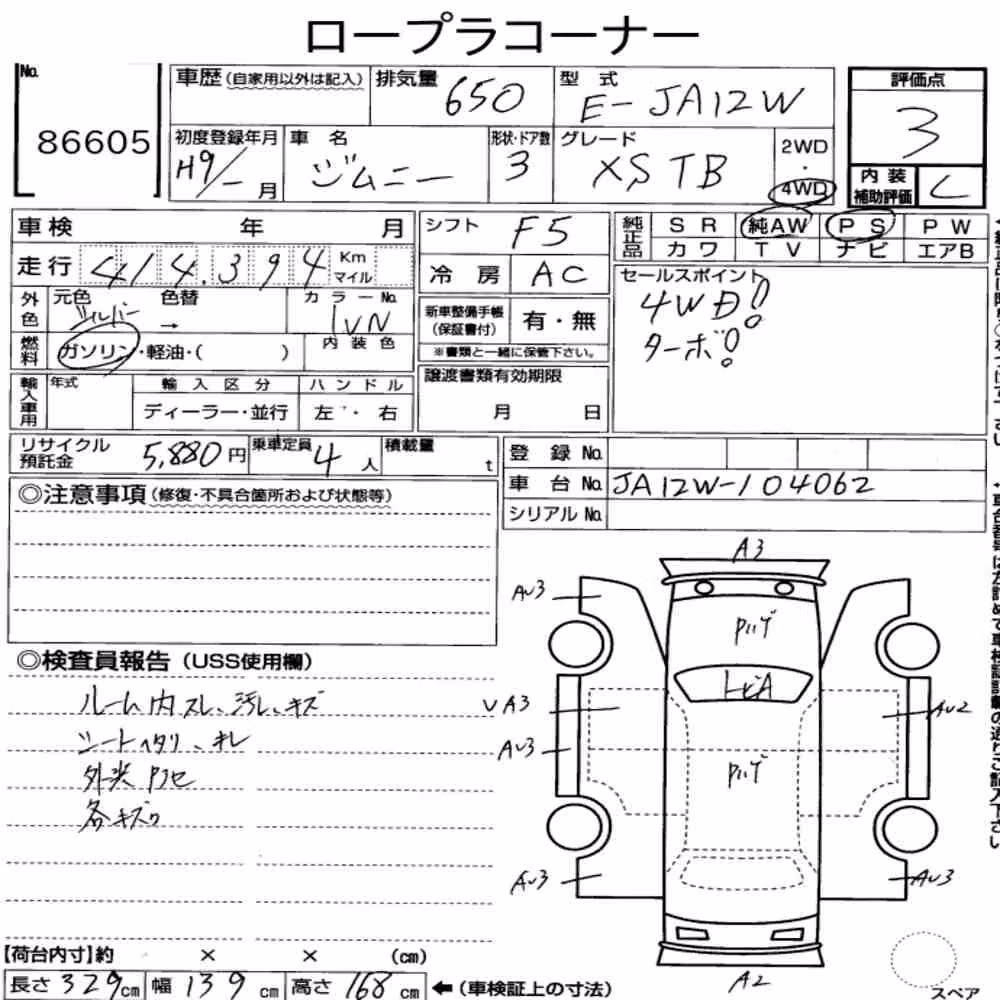 ロープラコーナー
No.
86605
車歴(自家用以外は記入)
排気量
650
型 式
E-JA12W
評価点
3
初度登録年月
H9/- 月
車 名
ジムニー
形状・ドア数
3
グレード
XS TB
2WD
・
4WD
内装
補助評価
C
車検 年 月
シフト
F5
純正品
SR 純AW PS PW
カワ TV ナビ エアB
走行
414.394
Km
マイル
冷 房
AC
セールスポイント
4WD!
ターボ!
外色
元色
シルバー
色替
→
カラーNo.
1VN
新車整備手帳
(保証書付)
有・無
※書類と一緒に保管下さい。
燃料
ガソリン・軽油・( )
内装色
輸入車用
年式
輸入区分
ハンドル
ディーラー・並行
左・右
譲渡書類有効期限
月 日
リサイクル
預託金
5,880円
乗車定員
4人
積載量
t
登録No.
車台No.
JA12W-104062
シリアルNo.
◎注意事項(修復・不具合箇所および状態等)
◎検査員報告(USS使用欄)
ルーム内スレ、汚レ、キズ
シートヘタリ、キレ
外装
各キズ
A3
AU3
AU3
AU3
A3
AU2
AU3
A2
【荷台内寸】約 × × (cm)
長さ329cm 幅139cm 高さ168cm
←(車検証上の寸法)
スペア